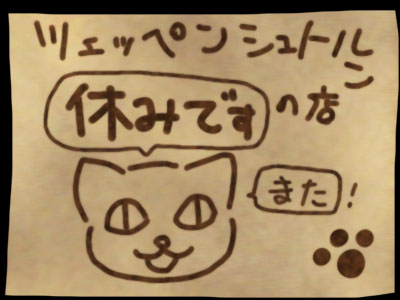 ツェッペンシュトルン
の店
休みです
また!